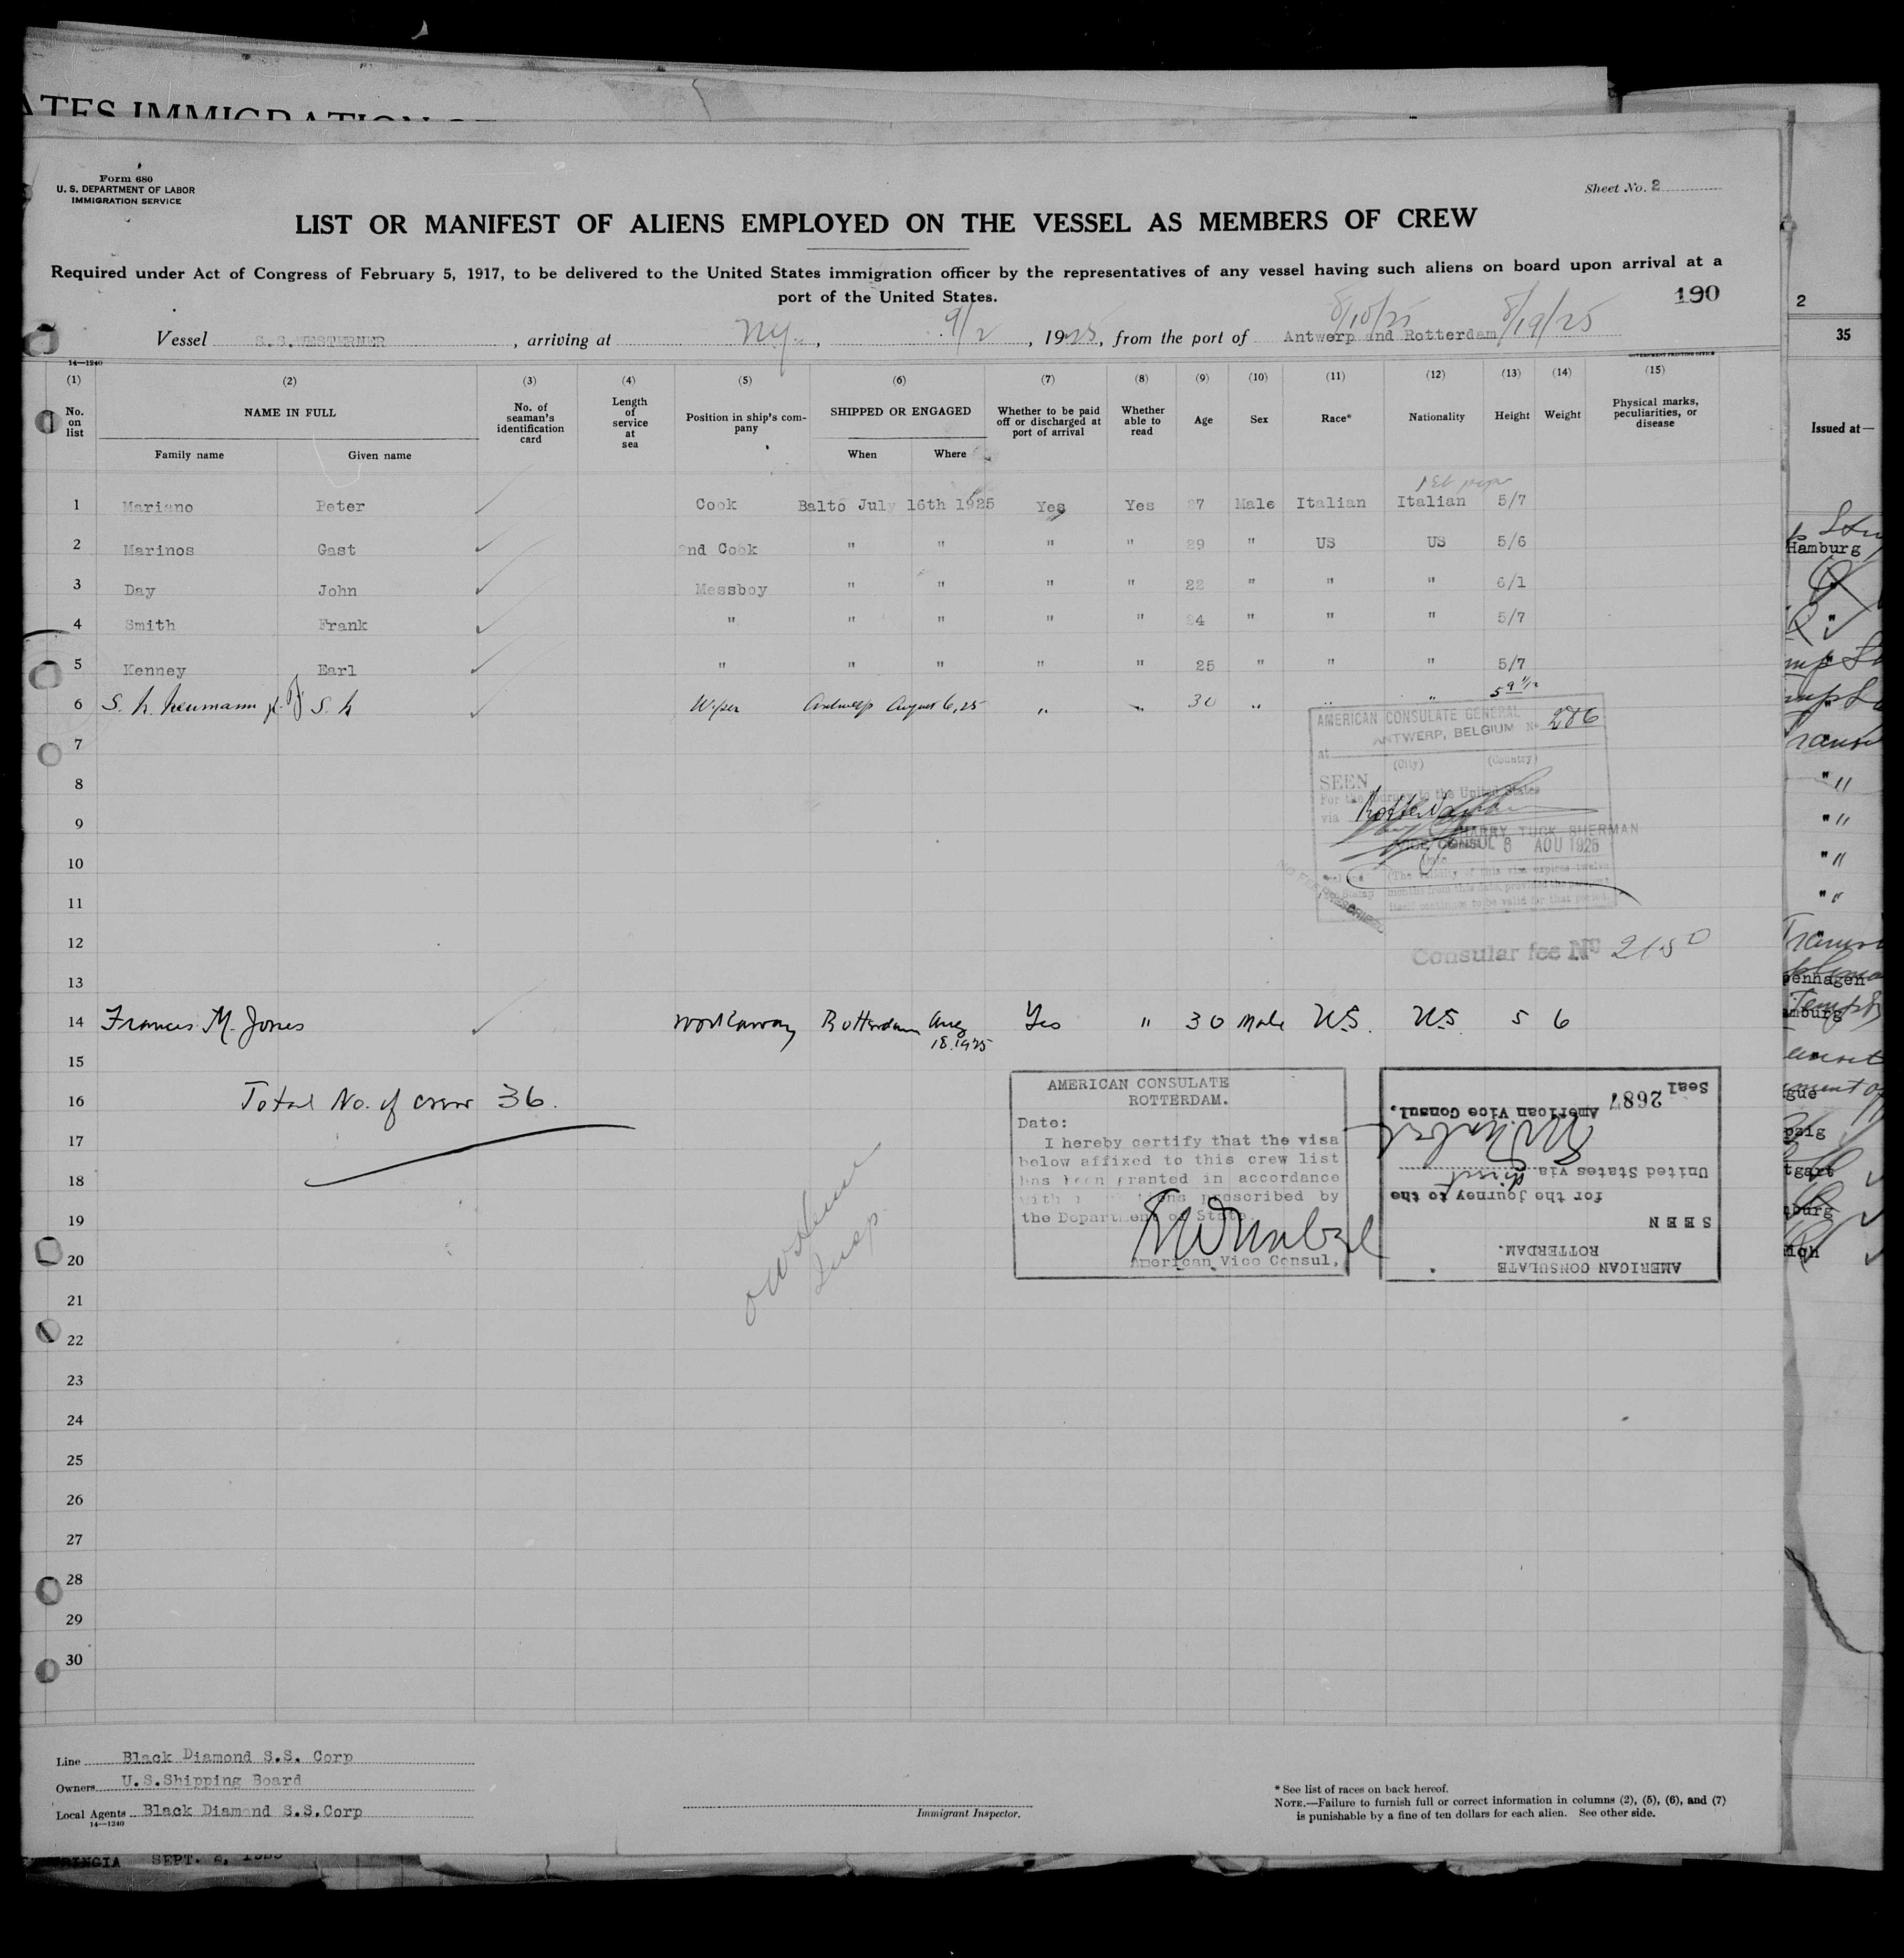 ATES IMMIGRATION
Form 680
U. S. DEPARTMENT OF LABOR
IMMIGRATION SERVICE
Sheet No. 2
LIST OR MANIFEST OF ALIENS EMPLOYED ON THE VESSEL AS MEMBERS OF CREW
Required under Act of Congress of February 5, 1917, to be delivered to the United States immigration officer by the representatives of any vessel having such aliens on board upon arrival at a
port of the United States.
190
8/10/25 8/19/25
Vessel S.S.WESTERNER, arriving at NY., 9/2, 1925, from the port of Antwerp and Rotterdam
14—1240
GOVERNMENT PRINTING OFFICE
(1) (2) (3) (4) (5) (6) (7) (8) (9) (10) (11) (12) (13) (14) (15)
No. on list NAME IN FULL No. of seaman's identification card Length of service at sea Position in ship's company SHIPPED OR ENGAGED Whether to be paid off or discharged at port of arrival Whether able to read Age Sex Race* Nationality Height Weight Physical marks, peculiarities, or disease
Family name Given name When Where
1st paper
1 Mariano Peter Cook Balto July 16th 1925 Yes Yes 37 Male Italian Italian 5/7
2 Marinos Gast 2nd Cook " " " " 29 " US US 5/6
3 Day John Messboy " " " " 22 " " " 6/1
4 Smith Frank " " " " " 24 " " " 5/7
5 Kenney Earl " " " " " 25 " " " 5/7
6 S. h. Neumann jr. S. h Wiper Antwerp August 6, 25 " " 30 " " " 5 9 1/2
7
8
9
10
11
12
13
AMERICAN CONSULATE GENERAL
at ANTWERP, BELGIUM No 286
(City) (Country)
SEEN
For the journey to the United States
via Rotterdam
HARRY TUCK SHERMAN
VICE CONSUL 6 AOU 1925
Date
(The validity of this visa expires twelve
months from this date, provided the passport
itself continues to be valid for that period.
NO FEE PRESCRIBED
Consular fee No 2150
14 Frances M. Jones workaway Rotterdam Aug 18.1925 Yes " 30 Male US. US. 5 6
15
16 Total No. of crew 36.
17
18
19
20
21
22
23
24
25
26
27
28
29
30
AMERICAN CONSULATE
ROTTERDAM.
Date:
I hereby certify that the visa
below affixed to this crew list
has been granted in accordance
with prescribed by
the Department of State.
American Vice Consul,
AMERICAN CONSULATE
ROTTERDAM.
SEEN
for the journey to the
United States via direct
American Vice Consul.
Seal 2687
Insp.
Line Black Diamond S.S. Corp
Owners U.S.Shipping Board
Local Agents Black Diamond S.S.Corp
14—1240
Immigrant Inspector.
* See list of races on back hereof.
NOTE.—Failure to furnish full or correct information in columns (2), (5), (6), and (7)
is punishable by a fine of ten dollars for each alien. See other side.
2
35
Issued at—
Hamburg
penhagen
SEPT. 2,